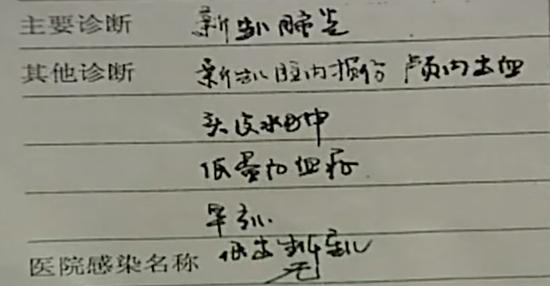 主要诊断 新生儿肺炎
其他诊断 新生儿脑内损伤 颅内出血
头皮水肿
低蛋白血症
早产儿
医院感染名称 低出生体重儿 无